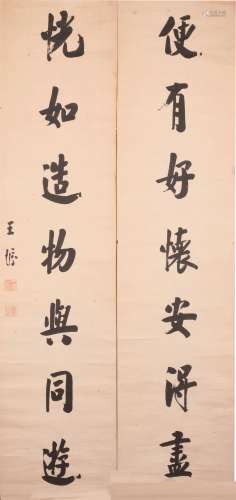 便有好懷安得盡
恍如造物與同遊
王